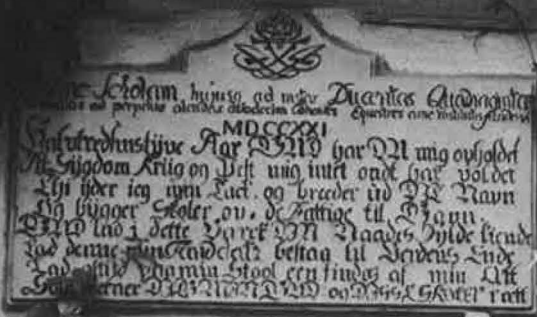 Scholam ad Ducentas Quadraginta
ad perpetuo alendas duodecim cohortes Equestres
MDCCXXI
Halvtredsinstyve Aar GUD har DU mig opholdet
At Sygdom Kriig og Pest mig intet ondt har voldet
Thi yder ieg min Tack, og breeder ud DIT Navn
Og bÿgger Skoler op, de Fattige til Gavn
GUD lad i dette Værck DIN Naades Fylde kiende
Lad denne min bestaa til Verdens Ende
Lad altid paa min Stool een findes af min Ætt
Som meener DIG MIN GUD og DISSE SKOLER rætt